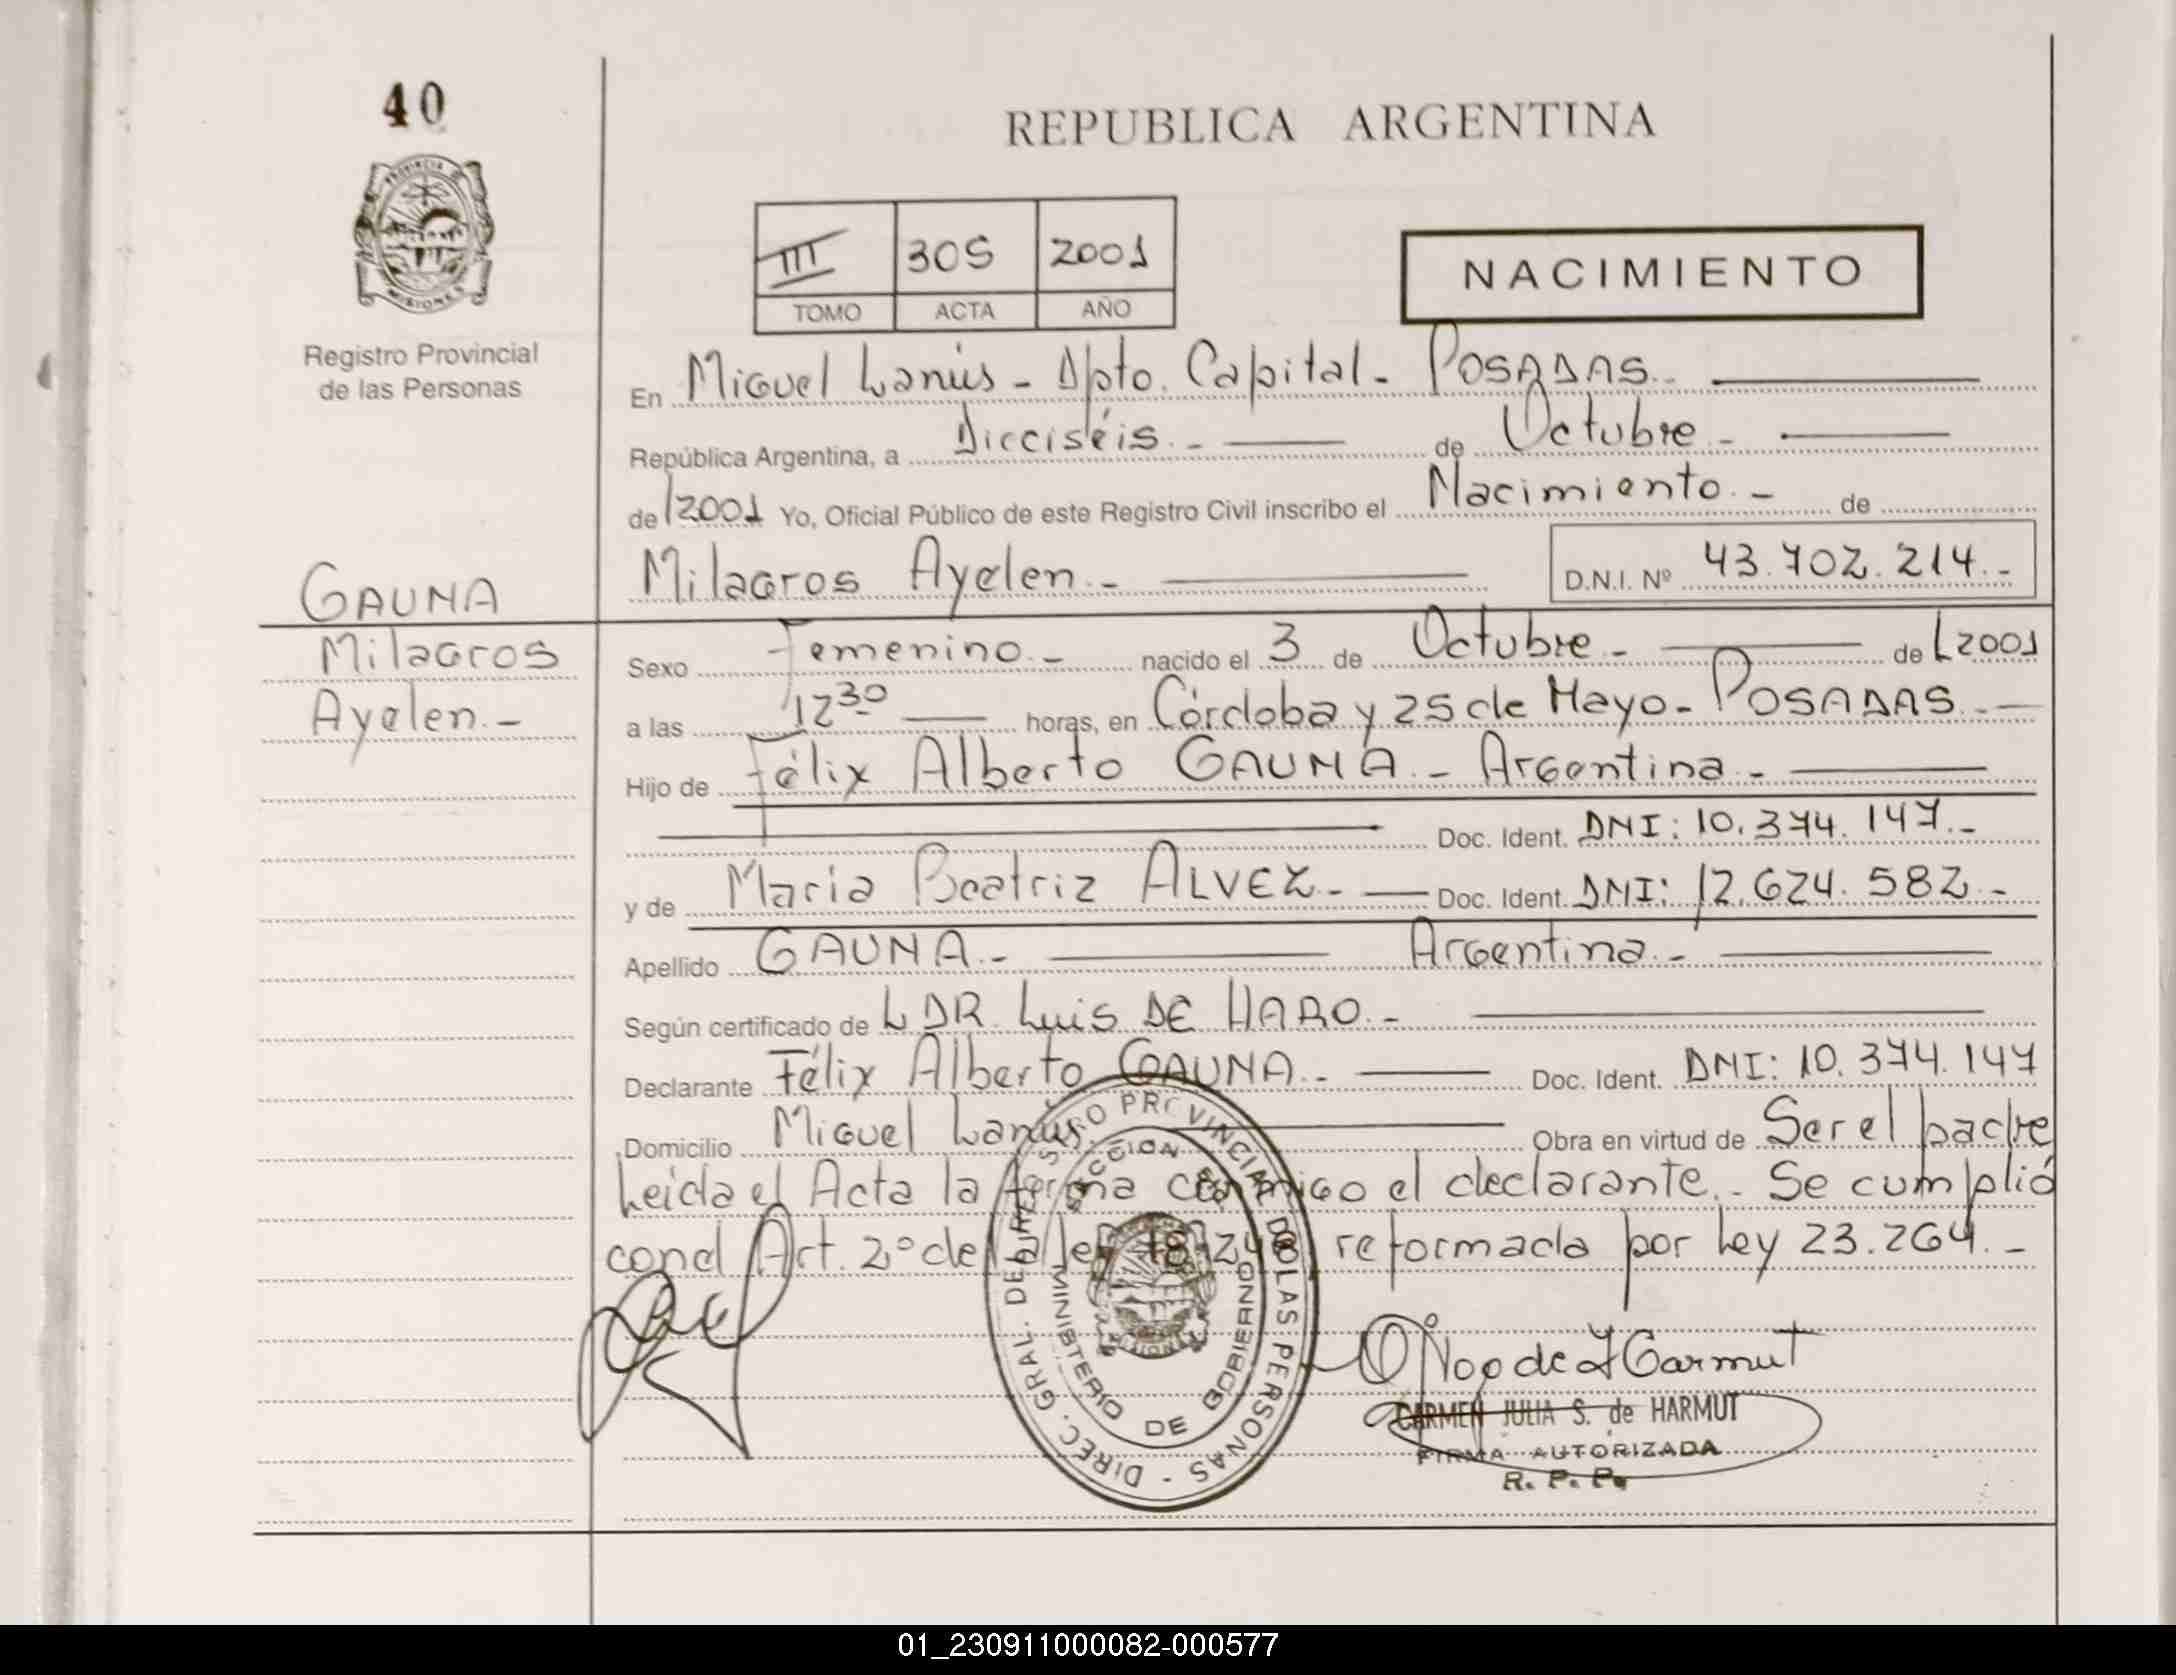 40
REPUBLICA ARGENTINA
PROVINCIA DE
MISIONES
Registro Provincial
de las Personas
III 305 2001
TOMO ACTA AÑO
NACIMIENTO
En Miguel Lanús - Dpto. Capital - POSADAS.
República Argentina, a Dieciséis.- de Octubre.-
de 2001 Yo, Oficial Público de este Registro Civil inscribo el Nacimiento.- de
Milagros Ayelen.- D.N.I. Nº 43.702.214.-
GAUNA
Milagros
Ayelen.-
Sexo Femenino.- nacido el 3 de Octubre.- de 2001
a las 12 30 horas, en Córdoba y 25 de Mayo - POSADAS.
Hijo de Félix Alberto GAUNA.- Argentina.-
Doc. Ident. DNI: 10.374.147.-
y de Maria Beatriz ALVEZ.- Doc. Ident. DNI: 12.624.582.-
Apellido GAUNA.- Argentina.-
Según certificado de L DR. Luis DE HARO.-
Declarante Félix Alberto GAUNA.- Doc. Ident. DNI: 10.374.147
Domicilio Miguel Lanús. Obra en virtud de Ser el padre
Leida el Acta la firma conmigo el declarante.- Se cumplió
con el Art. 2º de la ley 18.248 reformada por Ley 23.264.-
DIREC. GRAL. DEL REGISTRO PROVINCIAL DE LAS PERSONAS -
MINISTERIO DE GOBIERNO
CARMEN JULIA S. de HARMUT
FIRMA AUTORIZADA
R. P. P.
01_230911000082-000577